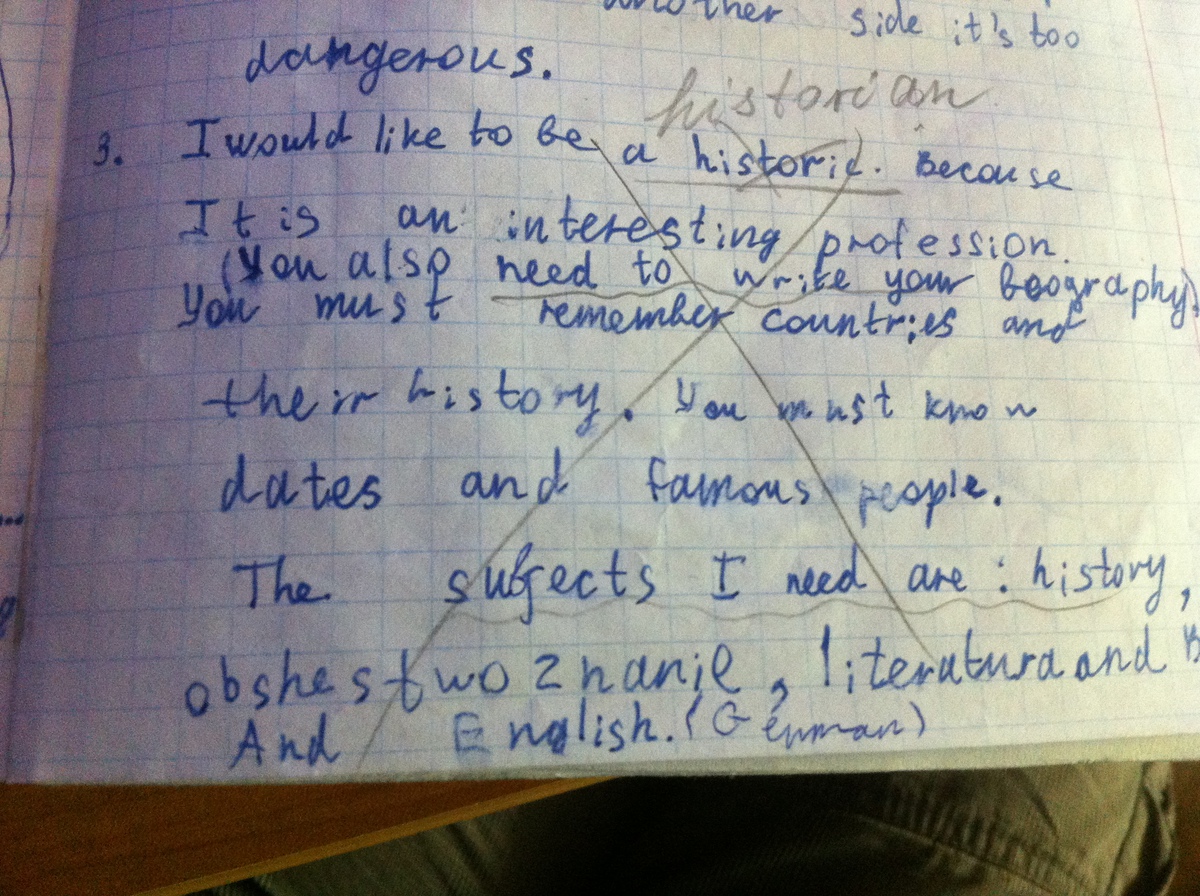 another side it's too
dangerous.
historian
3. I would like to be a historic. Because
It is an interesting profession.
(You also need to write your boography)
You must remember countries and
their history. You must know
dates and famous people.
The subjects I need are: history,
obshestwoznanie, literatura and
And English. (German)